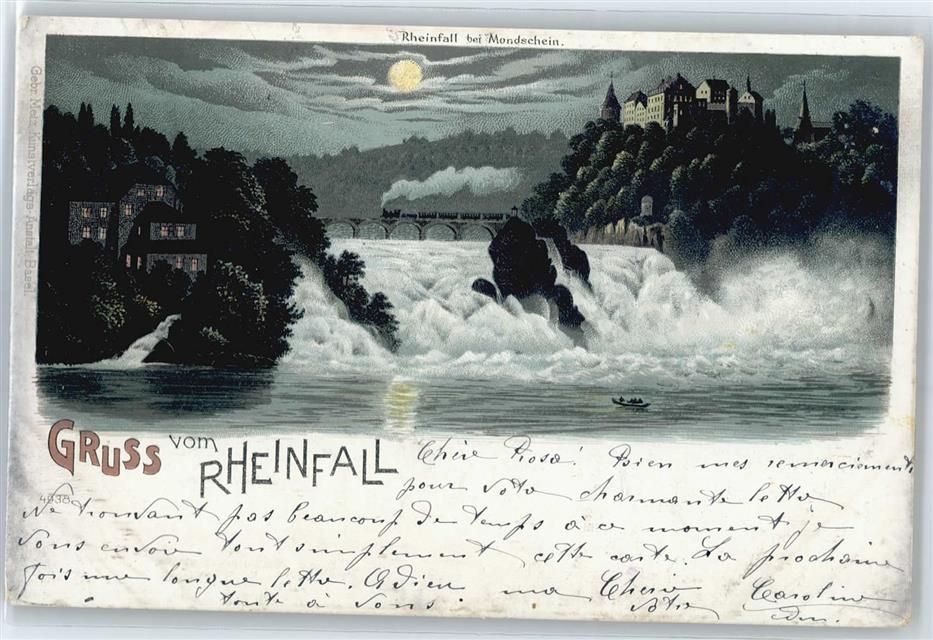 Rheinfall bei Mondschein.
Gebr. Metz, Kunstverlags-Anstalt, Basel.
GRUSS vom RHEINFALL
4938
Chère Rosa! Bien mes remerciements
pour votre charmante lettre
Ne trouvant pas beaucoup de temps à ce moment je
vous envoie tout simplement cette carte. La prochaine
fois une longue lettre. Adieu ma Chère
toute à vous. Votre Caroline